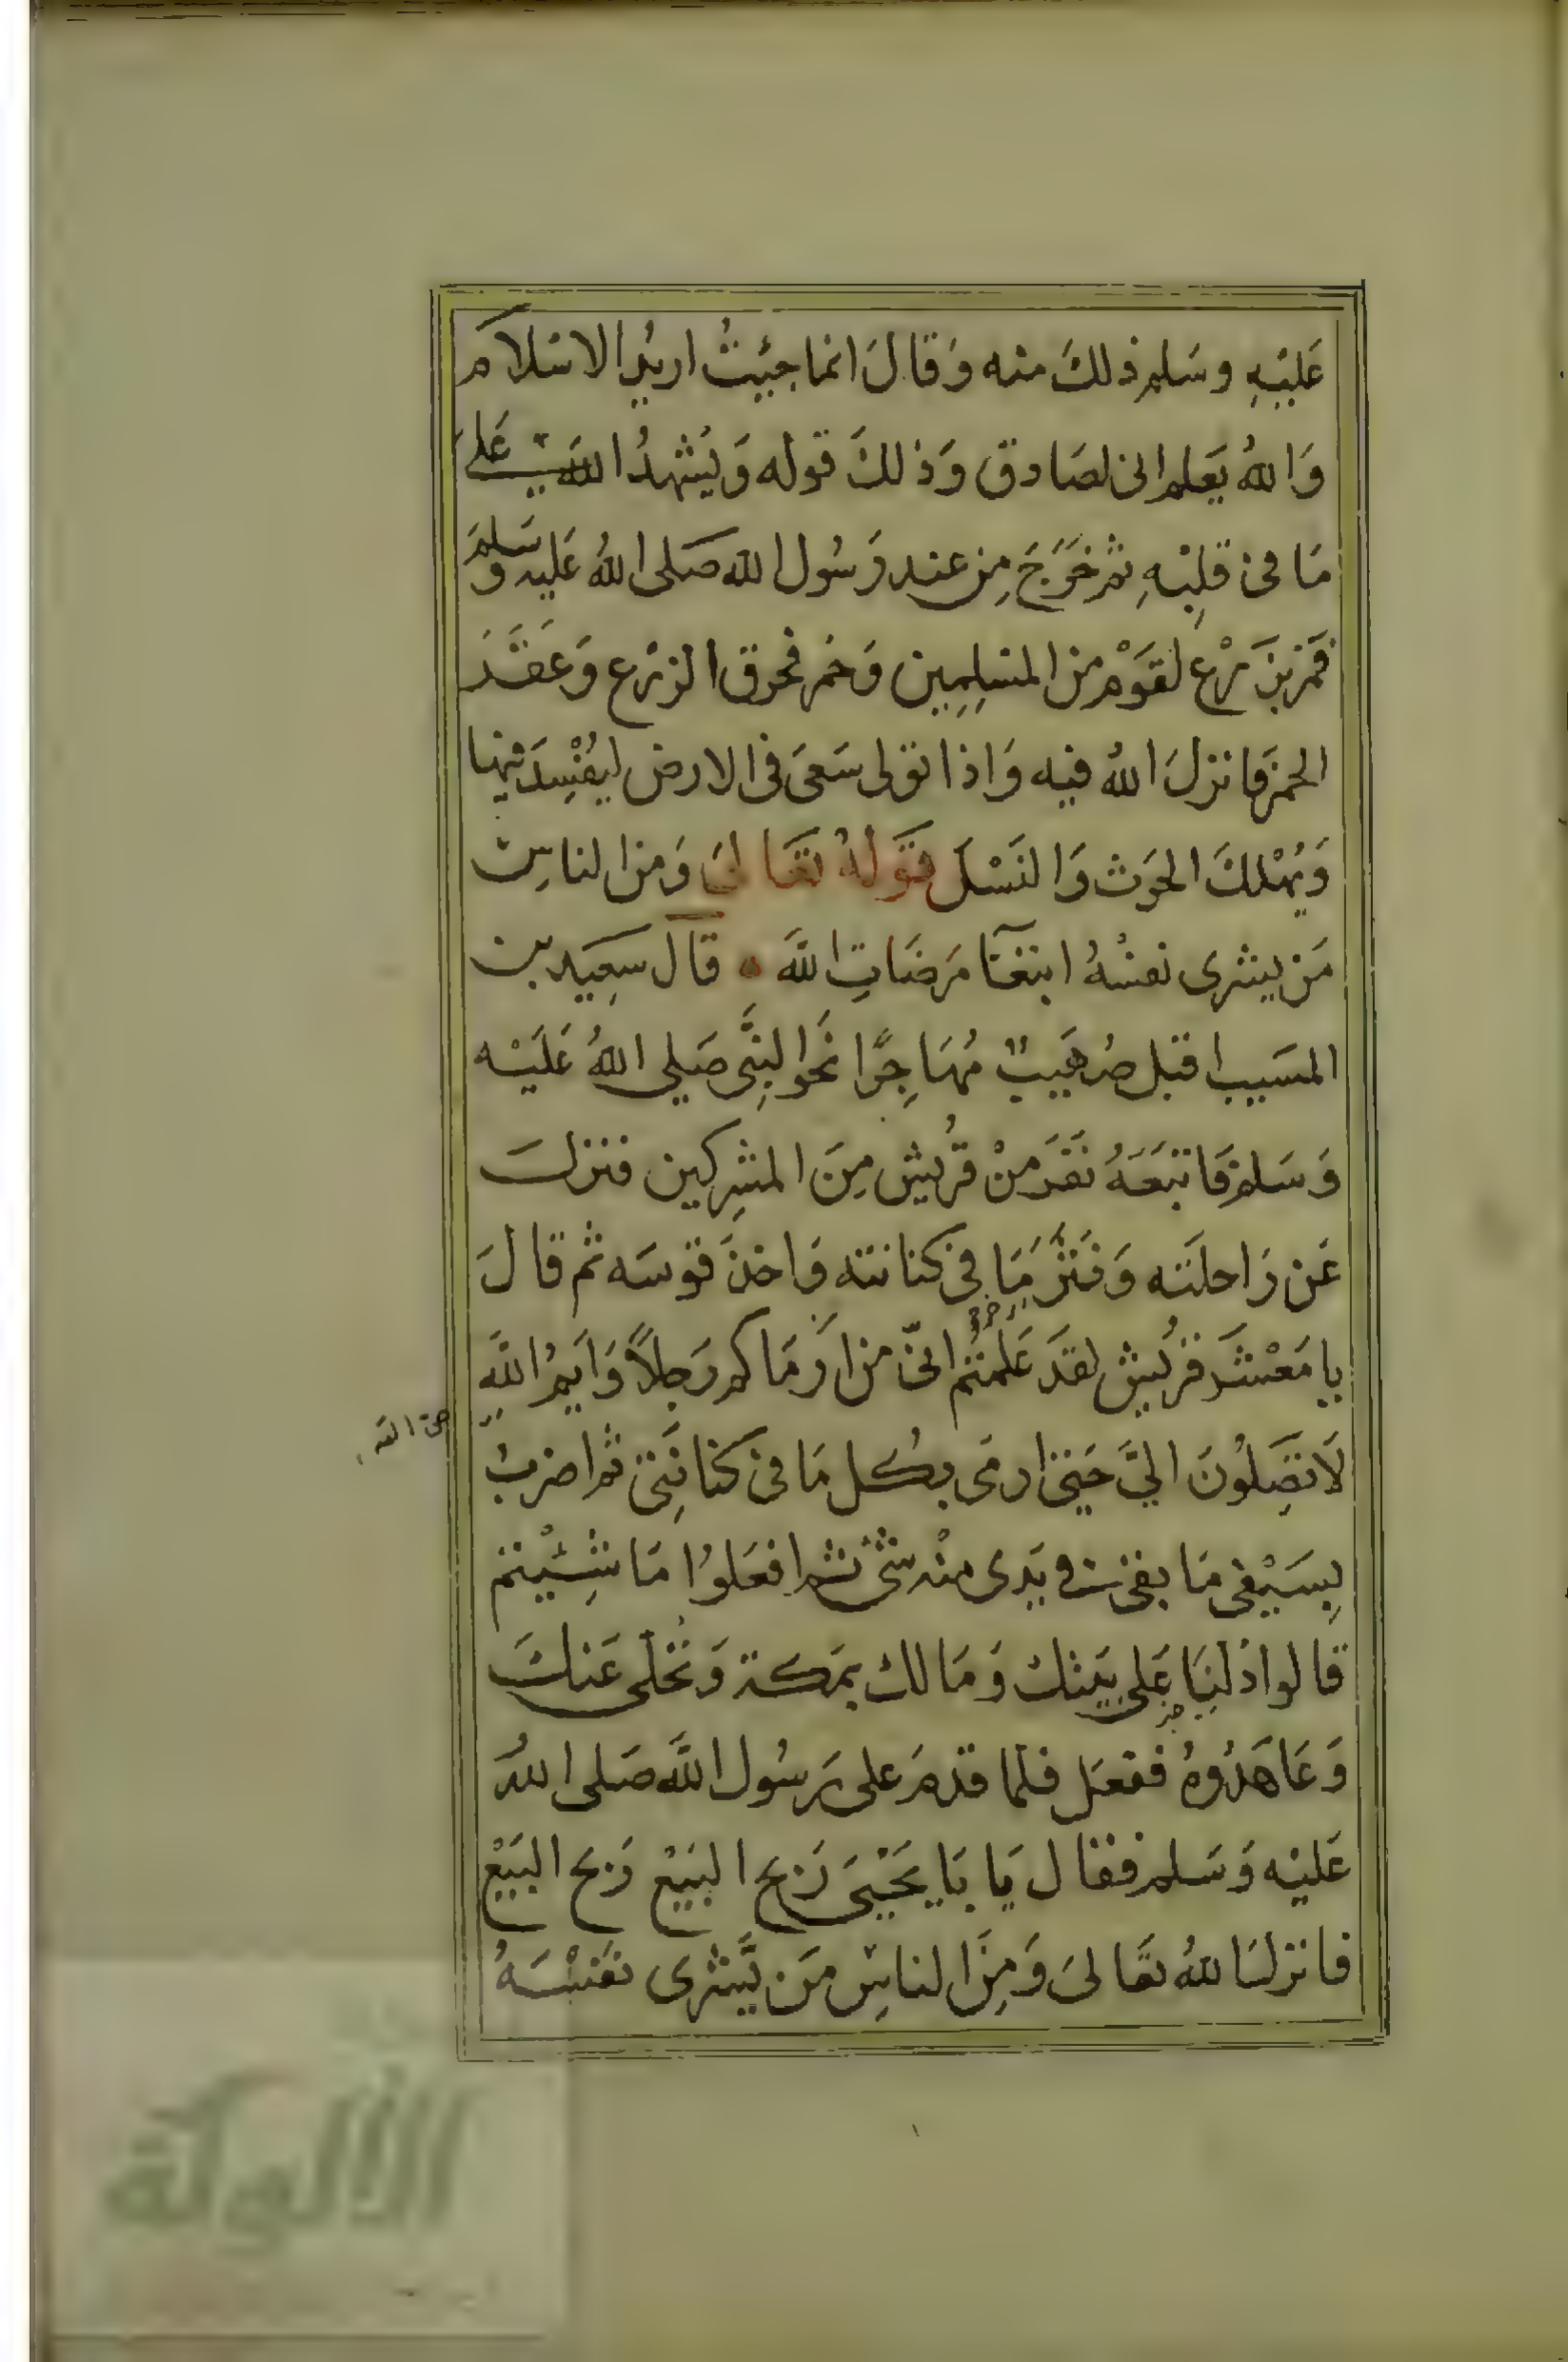 عَلَيْهِ وسَلم ذلكَ منه وَقالَ انما جِئيتُ اريدُ الاسْلامَ
وَاللهُ يَعلم انى لصَادق وَذلكَ قوله وَيُشهدُ اللهَ عَلى
مَا فى قَلِبْهِ ثم خَرَجَ مِن عند رَسُول الله صَلى اللهُ عَليه وسَلمَ
فمَر بزَرْع لقوَمْ من المسْلِمِين وَحُمر فحرق الزرْع وَعقَرَ
الحمرَ فانزلَ اللهُ فيه وَاذا تولى سَعىَ فى الارض ليُفْسِدَ فيها
وَيُهْلكَ الحَرث وَالنَسْلَ قوَلهُ تعَالىَ وَمن الناسِ
مَن يشرى نفسْهُ ابتغآ مَرضَاتِ اللهَ • قَالَ سَعِيَد بن
المسَيب اقبل صُهَيبٌ مُهَاجِرًا نَحوَ النِبَّى صَلى اللهُ عَلَيْه
وَسَلم فَاتبَعَهُ نفَر مِنْ قُريش مِنَ المشِركين فنزلَ
عَن رَاحلَته وَنَثَر مَا فى كنانته وَاخذَ قوسَه ثم قالَ
يا مَعْشَر قرُيش لقدَ عَلمتُم انىّ من ارَمَاكم رَجلاً وَايمُ اللهَِ
لَا تَصِلُونَ اليَّ حَتى ارمى بكُل مَا فى كنانِتَى ثم اضربُ
بِسَيْفى مَا بقى فى يَدى منْه شىْ ثم افعَلوُا مَا شِئيتم
قالوا دُلنِا عَلى بيَتك وَمَالك بمَكة وَنُخلى عَنكَ
وَعَاهَدُوهُ ففعَل فلما قدمَ على رَسُول اللَّهَ صَلى اللهُ
عَليْه وَسَلم فقال يَا بَا يَحْيَىَ رَبح البَيَعْ رَبح البَيَعْ
فانزلَ اللهُ تعَالىَ وَمِنَ الناسِ مَن يَّشرى نفَسْهُ